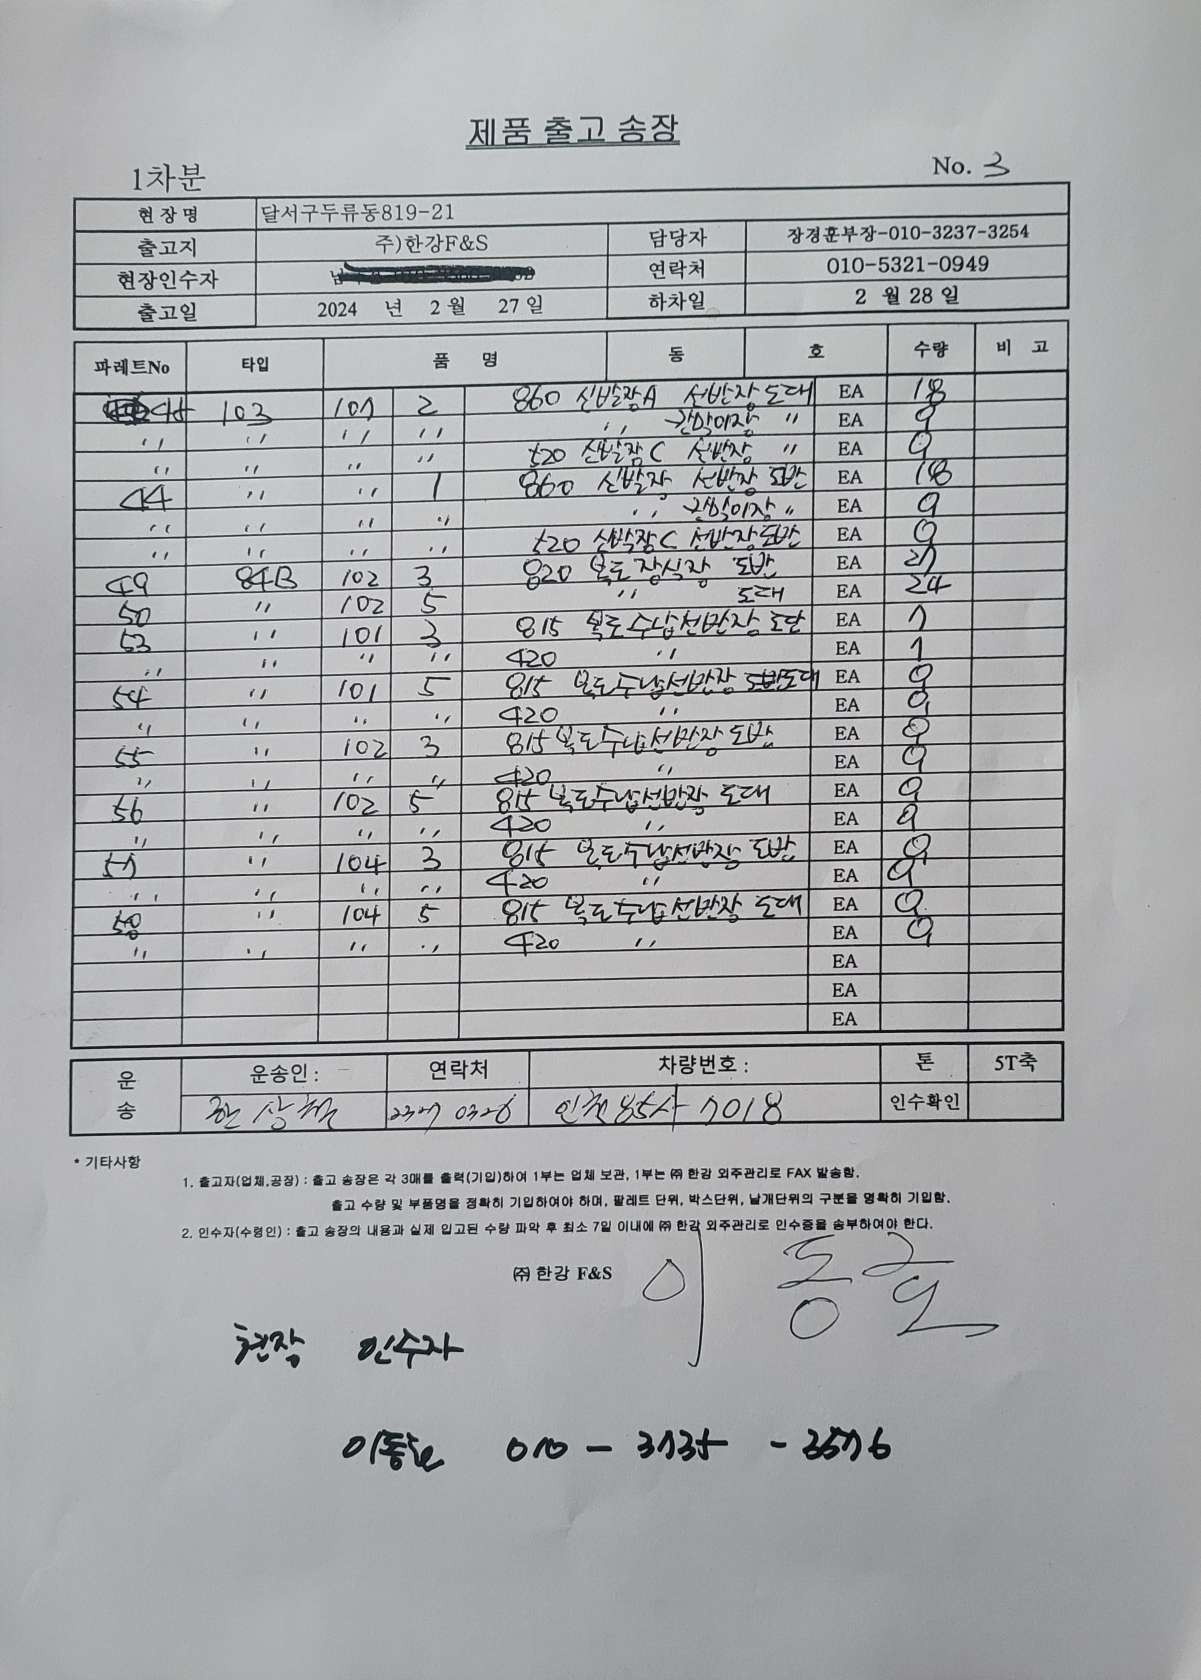 제품 출고 송장
1차분 No. 3
현장명 달서구두류동819-21
출고지 주)한강F&S 담당자 장경훈부장-010-3237-3254
현장인수자 연락처 010-5321-0949
출고일 2024 년 2 월 27 일 하차일 2 월 28 일
파레트No 타입 품 명 동 호 수량 비 고
103 107 2 860 신발장A 선반장 도대 EA 18
〃 〃 〃 〃 〃 칸막이장 〃 EA 9
〃 〃 〃 〃 520 신발장C 선반장 〃 EA 9
44 〃 〃 1 860 신발장 선반장 도반 EA 18
〃 〃 〃 〃 〃 칸막이장 〃 EA 9
〃 〃 〃 〃 520 신발장C 선반장도반 EA 9
49 84B 102 3 820 복도장식장 도반 EA 27
50 〃 102 5 〃 도대 EA 24
53 〃 101 3 815 복도수납선반장 EA 7
〃 〃 〃 〃 420 〃 EA 7
54 〃 101 5 815 복도수납선반장 도대 EA 9
〃 〃 〃 〃 420 〃 EA 9
55 〃 102 3 815 복도수납선반장 도반 EA 9
〃 〃 〃 〃 420 〃 EA 9
56 〃 102 5 815 복도수납선반장 도대 EA 9
〃 〃 〃 〃 420 〃 EA 9
57 〃 104 3 815 복도수납선반장 도반 EA 9
〃 〃 〃 〃 420 〃 EA 9
58 〃 104 5 815 복도수납선반장 도대 EA 9
〃 〃 〃 〃 420 〃 EA 9
EA
EA
EA
운송 운송인 : 연락처 차량번호 : 톤 5T축
2327 0326 인천85사 7018 인수확인
* 기타사항
1. 출고자(업체,공장) : 출고 송장은 각 3매를 출력(기입)하여 1부는 업체 보관, 1부는 ㈜ 한강 외주관리로 FAX 발송함.
출고 수량 및 부품명을 정확히 기입하여야 하며, 팔레트 단위, 박스단위, 낱개단위의 구분을 명확히 기입함.
2. 인수자(수령인) : 출고 송장의 내용과 실제 입고된 수량 파악 후 최소 7일 이내에 ㈜ 한강 외주관리로 인수증을 송부하여야 한다.
㈜ 한강 F&S
현장 인수자
010 - 3735 - 3576